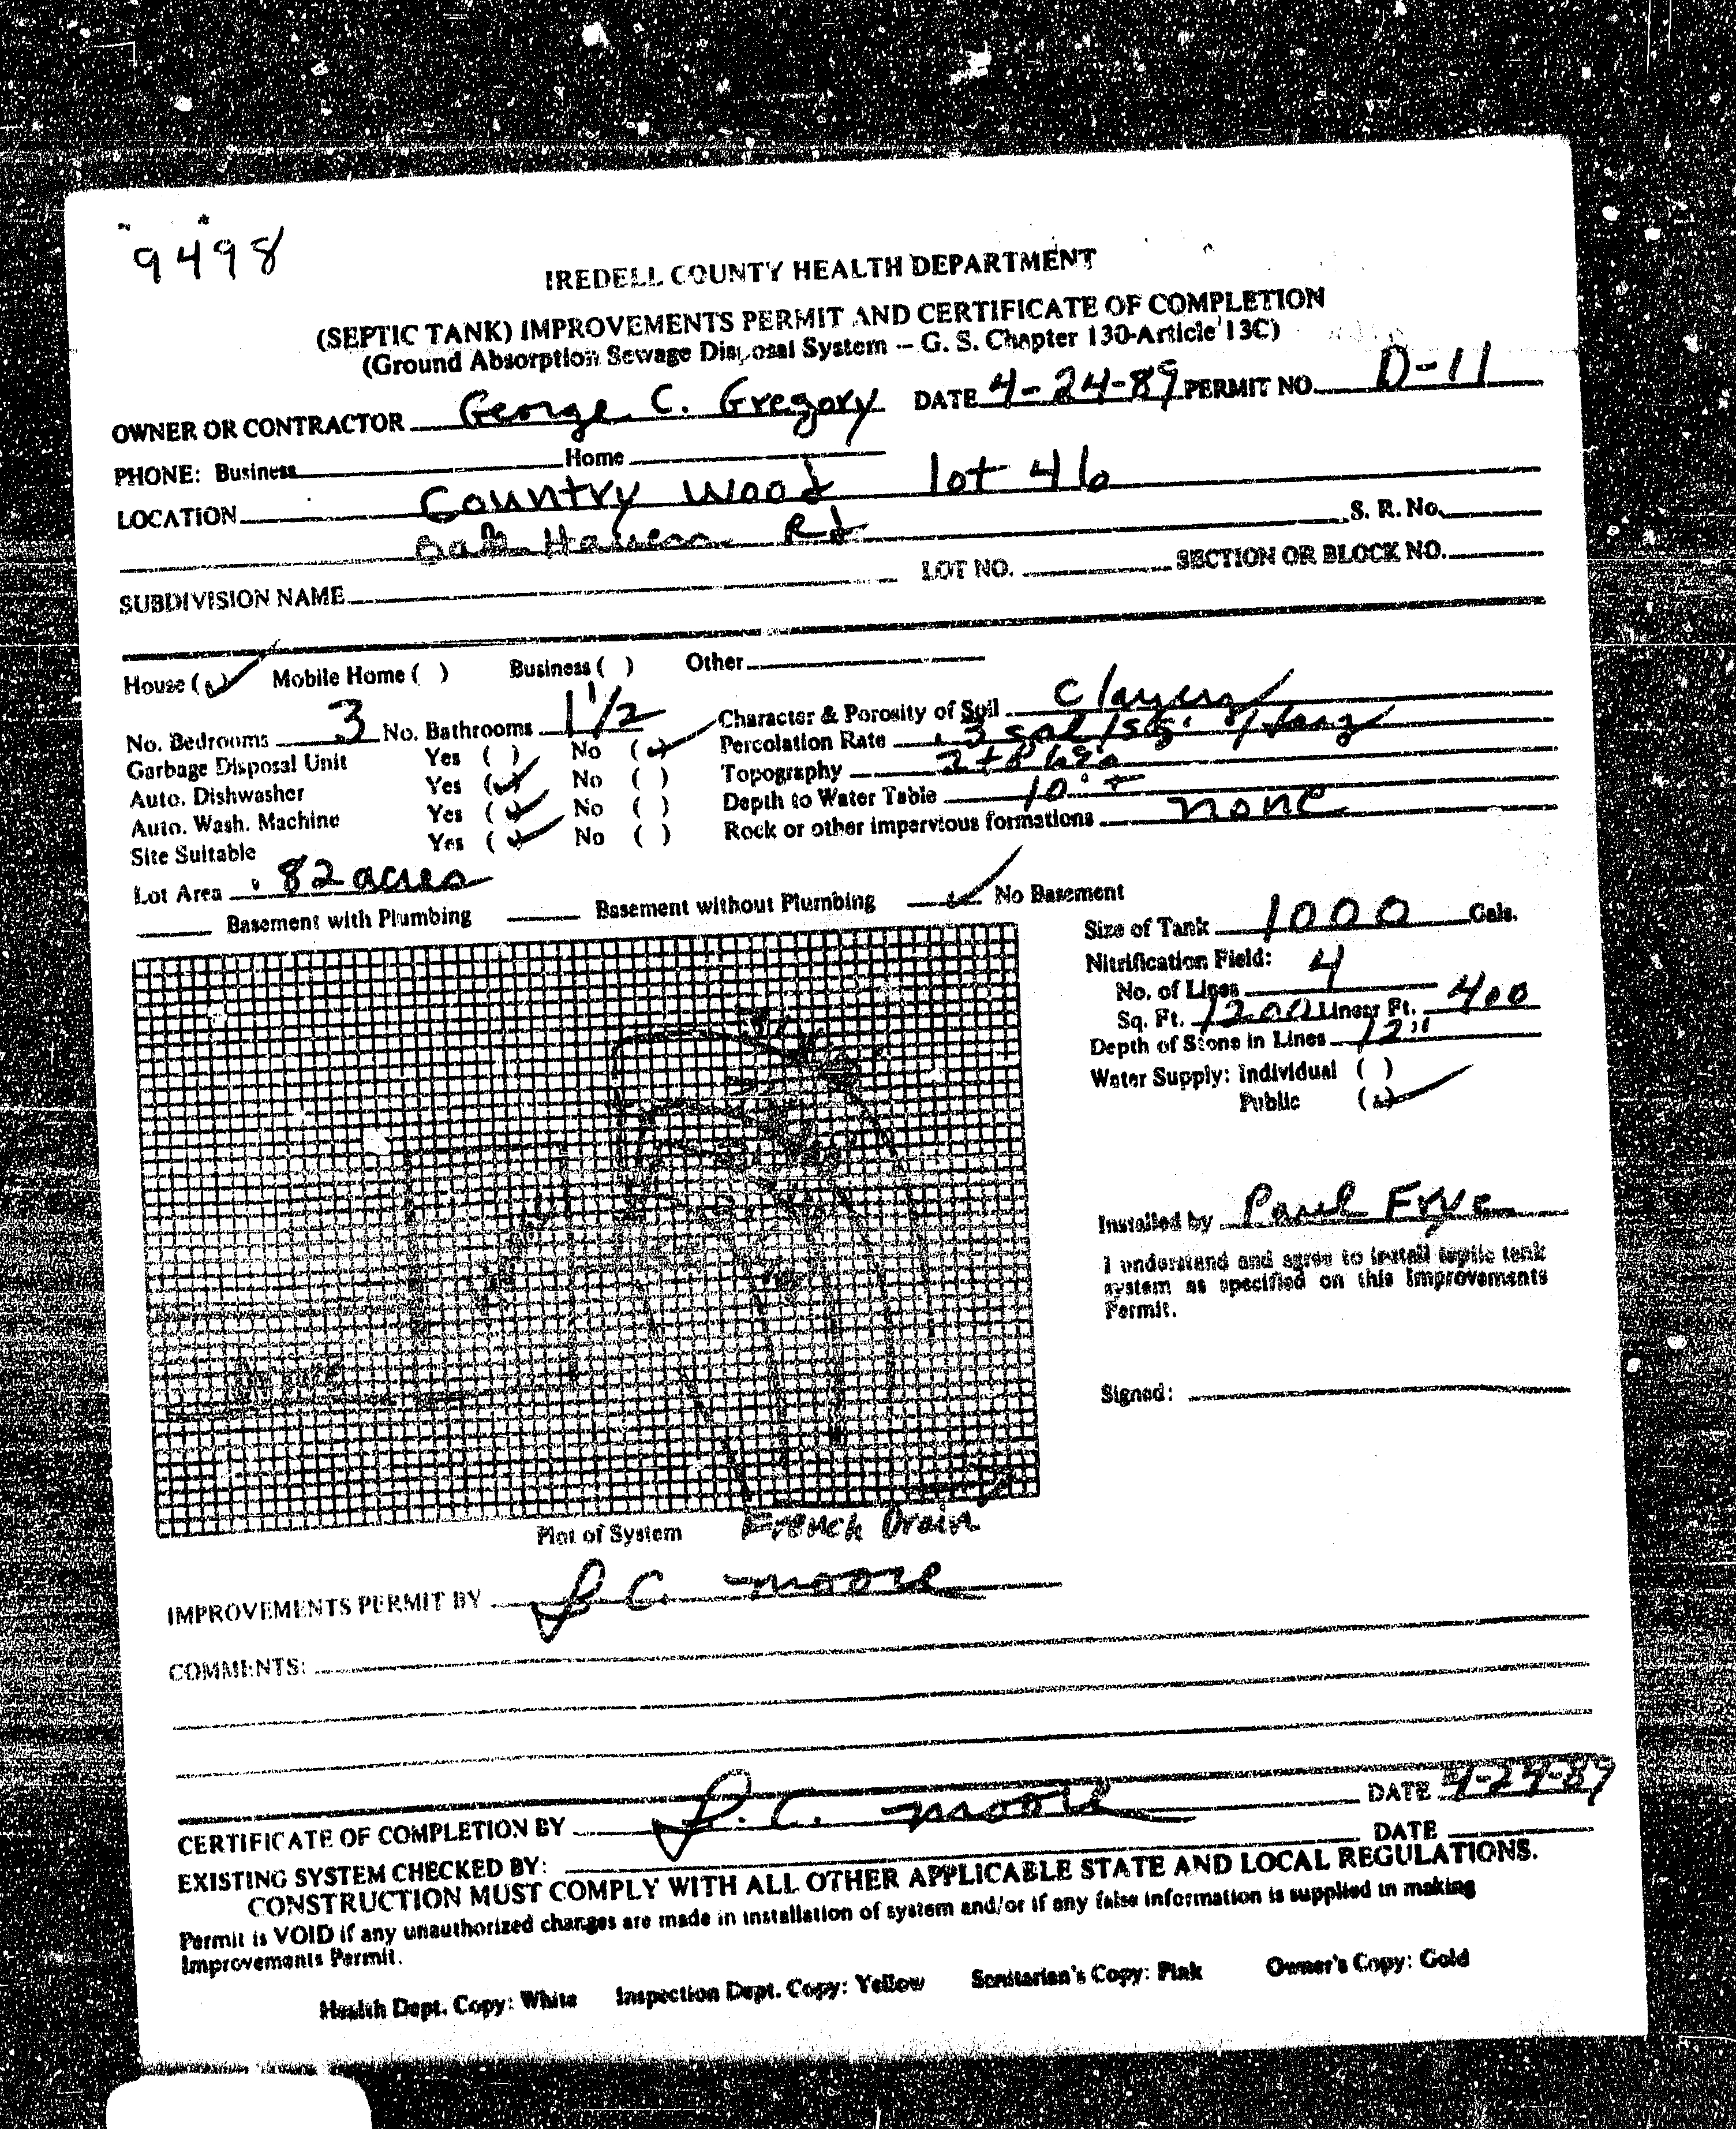 9498
IREDELL COUNTY HEALTH DEPARTMENT
(SEPTIC TANK) IMPROVEMENTS PERMIT AND CERTIFICATE OF COMPLETION
(Ground Absorption Sewage Disposal System -- G. S. Chapter 130-Article 13C)
OWNER OR CONTRACTOR George C. Gregory DATE 4-24-89 PERMIT NO. D-11
PHONE: Business Home
LOCATION Country Wood lot 46
Rd S. R. No.
SUBDIVISION NAME LOT NO. SECTION OR BLOCK NO.
House (✓) Mobile Home ( ) Business ( ) Other
No. Bedrooms 3 No. Bathrooms 1 1/2 Character & Porosity of Soil
Garbage Disposal Unit Yes ( ) No (✓) Percolation Rate .3 gal/sq.
Auto. Dishwasher Yes (✓) No ( ) Topography
Auto. Wash. Machine Yes (✓) No ( ) Depth to Water Table 10' +
Site Suitable Yes (✓) No ( ) Rock or other impervious formations none
Lot Area .82 acres
Basement with Plumbing Basement without Plumbing ✓ No Basement
Size of Tank 1000 Gals.
Nitrification Field:
No. of Lines 4
Sq. Ft. 1200 Linear Ft. 400
Depth of Stone in Lines 12"
Water Supply: Individual ( )
Public (✓)
Installed by Paul Frye
I understand and agree to install septic tank
system as specified on this Improvements
Permit.
Signed:
Plot of System French Drain
IMPROVEMENTS PERMIT BY J. C. Moore
COMMENTS:
CERTIFICATE OF COMPLETION BY J. C. Moore DATE 4-24-89
EXISTING SYSTEM CHECKED BY: DATE
CONSTRUCTION MUST COMPLY WITH ALL OTHER APPLICABLE STATE AND LOCAL REGULATIONS.
Permit is VOID if any unauthorized changes are made in installation of system and/or if any false information is supplied in making
Improvements Permit.
Health Dept. Copy: White Inspection Dept. Copy: Yellow Sanitarian's Copy: Pink Owner's Copy: Gold